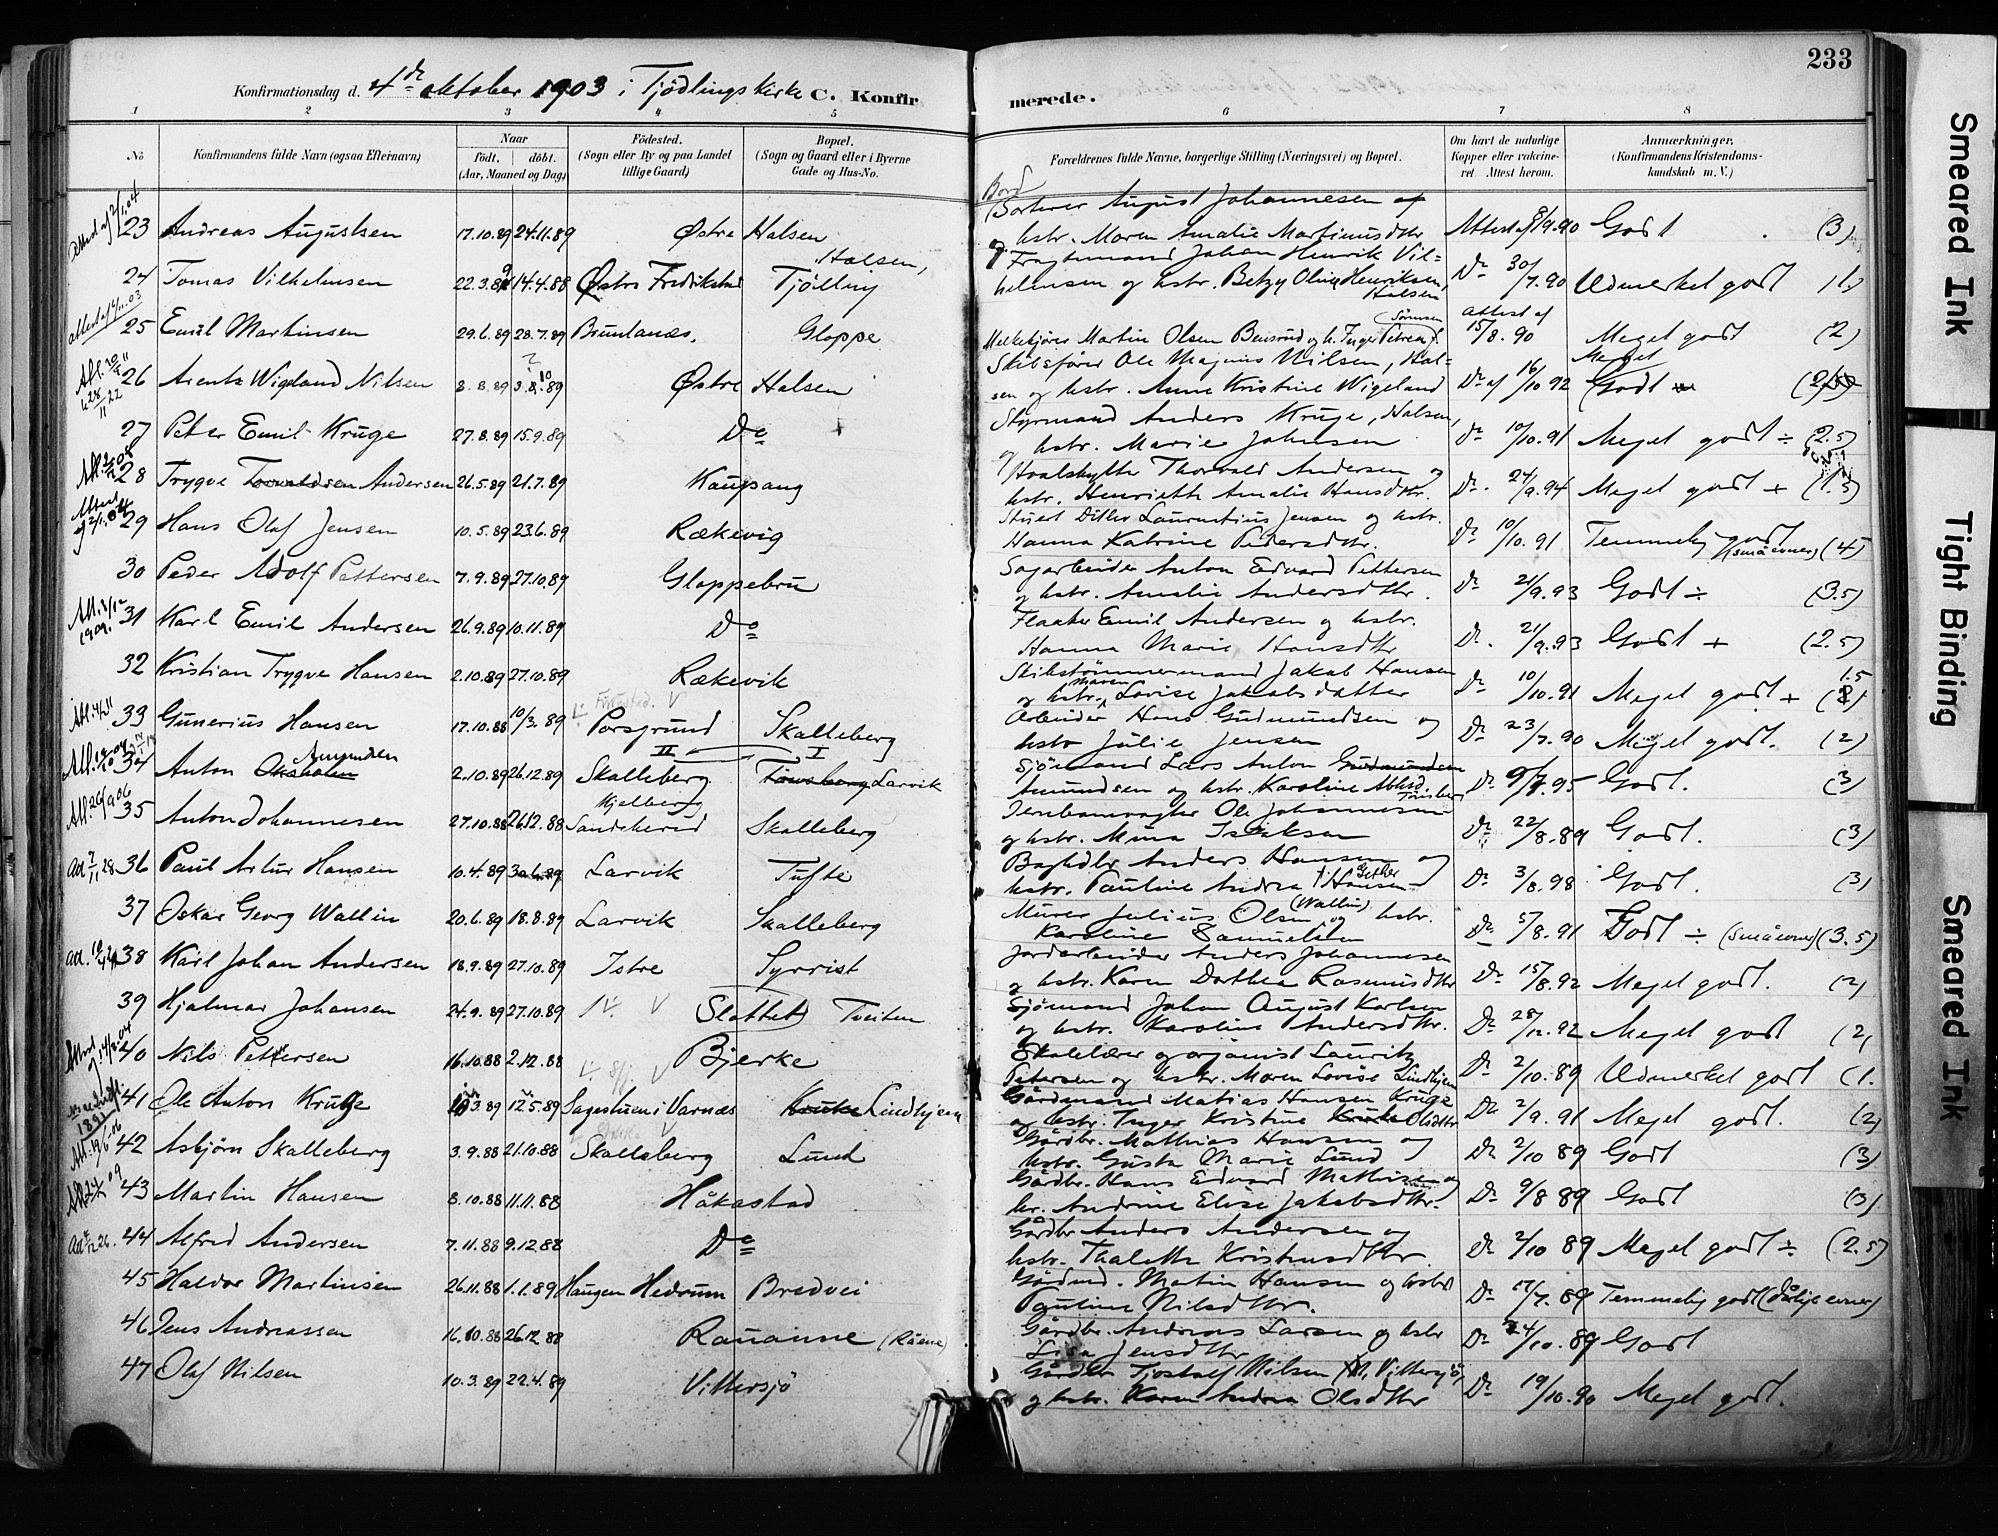 233
Konfirmationsdag d. 4de oktober 1903 i Tjödlings Kirke C. Konfirmerede.
1 2 3 4 5 6 7 8
No
Konfirmandens fulde Navn (ogsaa Efternavn)
Naar
födt. döbt.
(Aar, Maaned og Dag)
Födested.
(Sogn eller By og paa Landet
tillige Gaard)
Bopæl.
(Sogn og Gaard eller i Byerne
Gade og Hus-No.
Forældrenes fulde Navne, borgerlige Stilling (Næringsvei) og Bopæl.
Om havt de naturlige
Kopper eller vakcine-
ret. Attest herom.
Anmærkninger.
(Konfirmandens Kristendoms-
kundskab m. V.)
23 Andreas Augustsen 17.10.89 24.11.89 Østre Halsen August Johannesen og hstr. Maren Amalie Martinusdtr Attest af 8/9.90 Godt (3)
24 Tomas Vilhelmsen 22.3.89 14.4.88 Østre Fredrikstad Halsen, Tjølling Fragtemand Johan Henrik Vilhelmsen og hstr. Betzy Oline Henriksen, Halsen Do 30/7.90 Udmerket godt (1.)
25 Emil Martinsen 29.6.89 28.7.89 Brunlanæs, Gloppe Melkekjører Martin Olsen Bensrud og h. Inger Petrea Attest af 15/8.90 Meget godt (2)
26 Arentz Wigeland Nilsen 8.8.89 Østre Halsen Skibsfører Ole Magnus Nilsen, Halsen og hstr. Anne Kristine Wigeland Do af 16/10 92 Meget Godt
27 Peter Emil Kruge 27.8.89 15.9.89 Do Styrmand Anders Kruge, Halsen, og hstr. Marie Johnsen Do 10/10.91 Meget godt ÷ (2.5)
28 Trygve Andersen 26.5.89 21.7.89 Kaupang Hvalskytte Thorvald Andersen og hstr. Henriette Amalie Hansdtr. Do 24/9.94 Meget godt + (1.5)
29 Hans Olaf Jensen 10.5.89 23.6.89 Rækevig Stuert Ditlev Laurentius Jensen og hstr. Hanna Katrine Pedersdtr. Do 10/10.91 Temmelig godt (småevner) (4)
30 Peder Adolf Pettersen 7.9.89 27.10.89 Gloppebru Sagarbeider Anton Edvard Pettersen og hstr. Amalie Andersdtr. Do 21/9.93 Godt ÷ (3.5)
31 Karl Emil Andersen 26.9.89 10.11.89 Do Flaater Emil Andersen og hstr. Hanna Marie Hansdtr Do. 21/9.93 Godt + (2.5)
32 Kristian Trygve Hansen 2.10.89 27.10.89 Rækevik Skibstømmermand Jakob Hansen og hstr. Maren Lovise Jakobsdatter Do 10/10.91 Meget godt + 1.5
33 Gunerius Hansen 17.10.88 10/3.89 Porsgrund Skalleberg Arbeider Hans Gudmundsen og hstr Julie Jensen Do 23/7.90 Meget godt. (2)
34 Anton Amundsen 2.10.89 26.12.89 Skalleberg II I Larvik Sjömand Lars Anton Amundsen og hstr. Karoline Do Godt. (3)
35 Anton Johannesen 27.10.88 26.12.88 Kjelberg Sandeherred Skalleberg Jernbanevogter Ole Johannesen og hstr. Mina Isaksen Do 22/8.89 Godt. (3)
36 Paul Artur Hansen 10.4.89 30.6.89 Larvik Tufte Anders Hansen og hstr. Pauline Andrea Do 3/8.98 Godt. (3)
37 Oskar Georg Wallin 20.6.89 18.8.89 Larvik Skalleberg Murer Julius Olsen (Wallin) og hstr. Karoline Samuelsen Do 5/8.91 Godt ÷ (småevner) (3.5)
38 Karl Johan Andersen 18.9.89 27.10.89 Istre Syrrist Jordarbeider Anders Johannesen og hstr. Karen Dorthea Rasmusdtr Do 15/8.92 Meget godt. (2)
39 Hjalmar Johansen 24.9.89 27.10.89 Slottet Tveiten Sjömand Johan August Karlsen og hstr. Karoline Andersdtr. Do 28/12.92 Meget godt (2)
40 Nils Pettersen 16.10.88 2.12.88 Bjerke Skolelærer og organist Lauritz Petersen og hstr. Maren Lovise Lindhjem Do 2/10.89 Udmerket godt (1.
41 Ole Anton Kruge 12.5.89 Sagestuen i Varnæs Lindhjem Gårdmand Matias Hansen Kruge og hstr. Inger Kristine Olsdtr Do 2/9.91 Meget godt. (2)
42 Asbjörn Skalleberg 3.9.88 21.10.88 Skalleberg Lund Gårdbr. Mathias Hansen og hstr. Gusta Marie Lund Do 2/10 89 Godt (3)
43 Martin Hansen 8.10.88 11.11.88 Håkastad Gårdbr. Hans Edvard Mathisen og hr. Andrine Elise Jakobsdtr. Do 9/8 89 Godt (3)
44 Alfred Andersen 7.11.88 9.12.88 Do Gårdbr Anders Andersen og hstr. Thalette Kristensdtr Do 2/10 89 Meget godt ÷ (2.5)
45 Haldor Martinsen 26.11.88 1.1.89 Haugen Hedrum Bredvei Gårdmd. Martin Hansen og hstr Pauline Nilsdtr. Do 17/7.89 Temmelig godt (dårlige evner)
46 Jens Andreassen 16.10.88 26.12.88 Rauanne (Råene) Gårdbr. Andreas Larsen og hstr Lisa Jensdtr Do 24/10.89 Godt
47 Olaf Nilsen 10.3.89 22.4.89 Vittersjö Gårdbr Tjostolf Nilsen Vittersjö, og hstr. Karen Andrea Olsdtr Do 19/10.90 Meget godt.
Smeared Ink
Tight Binding
Smeared Ink